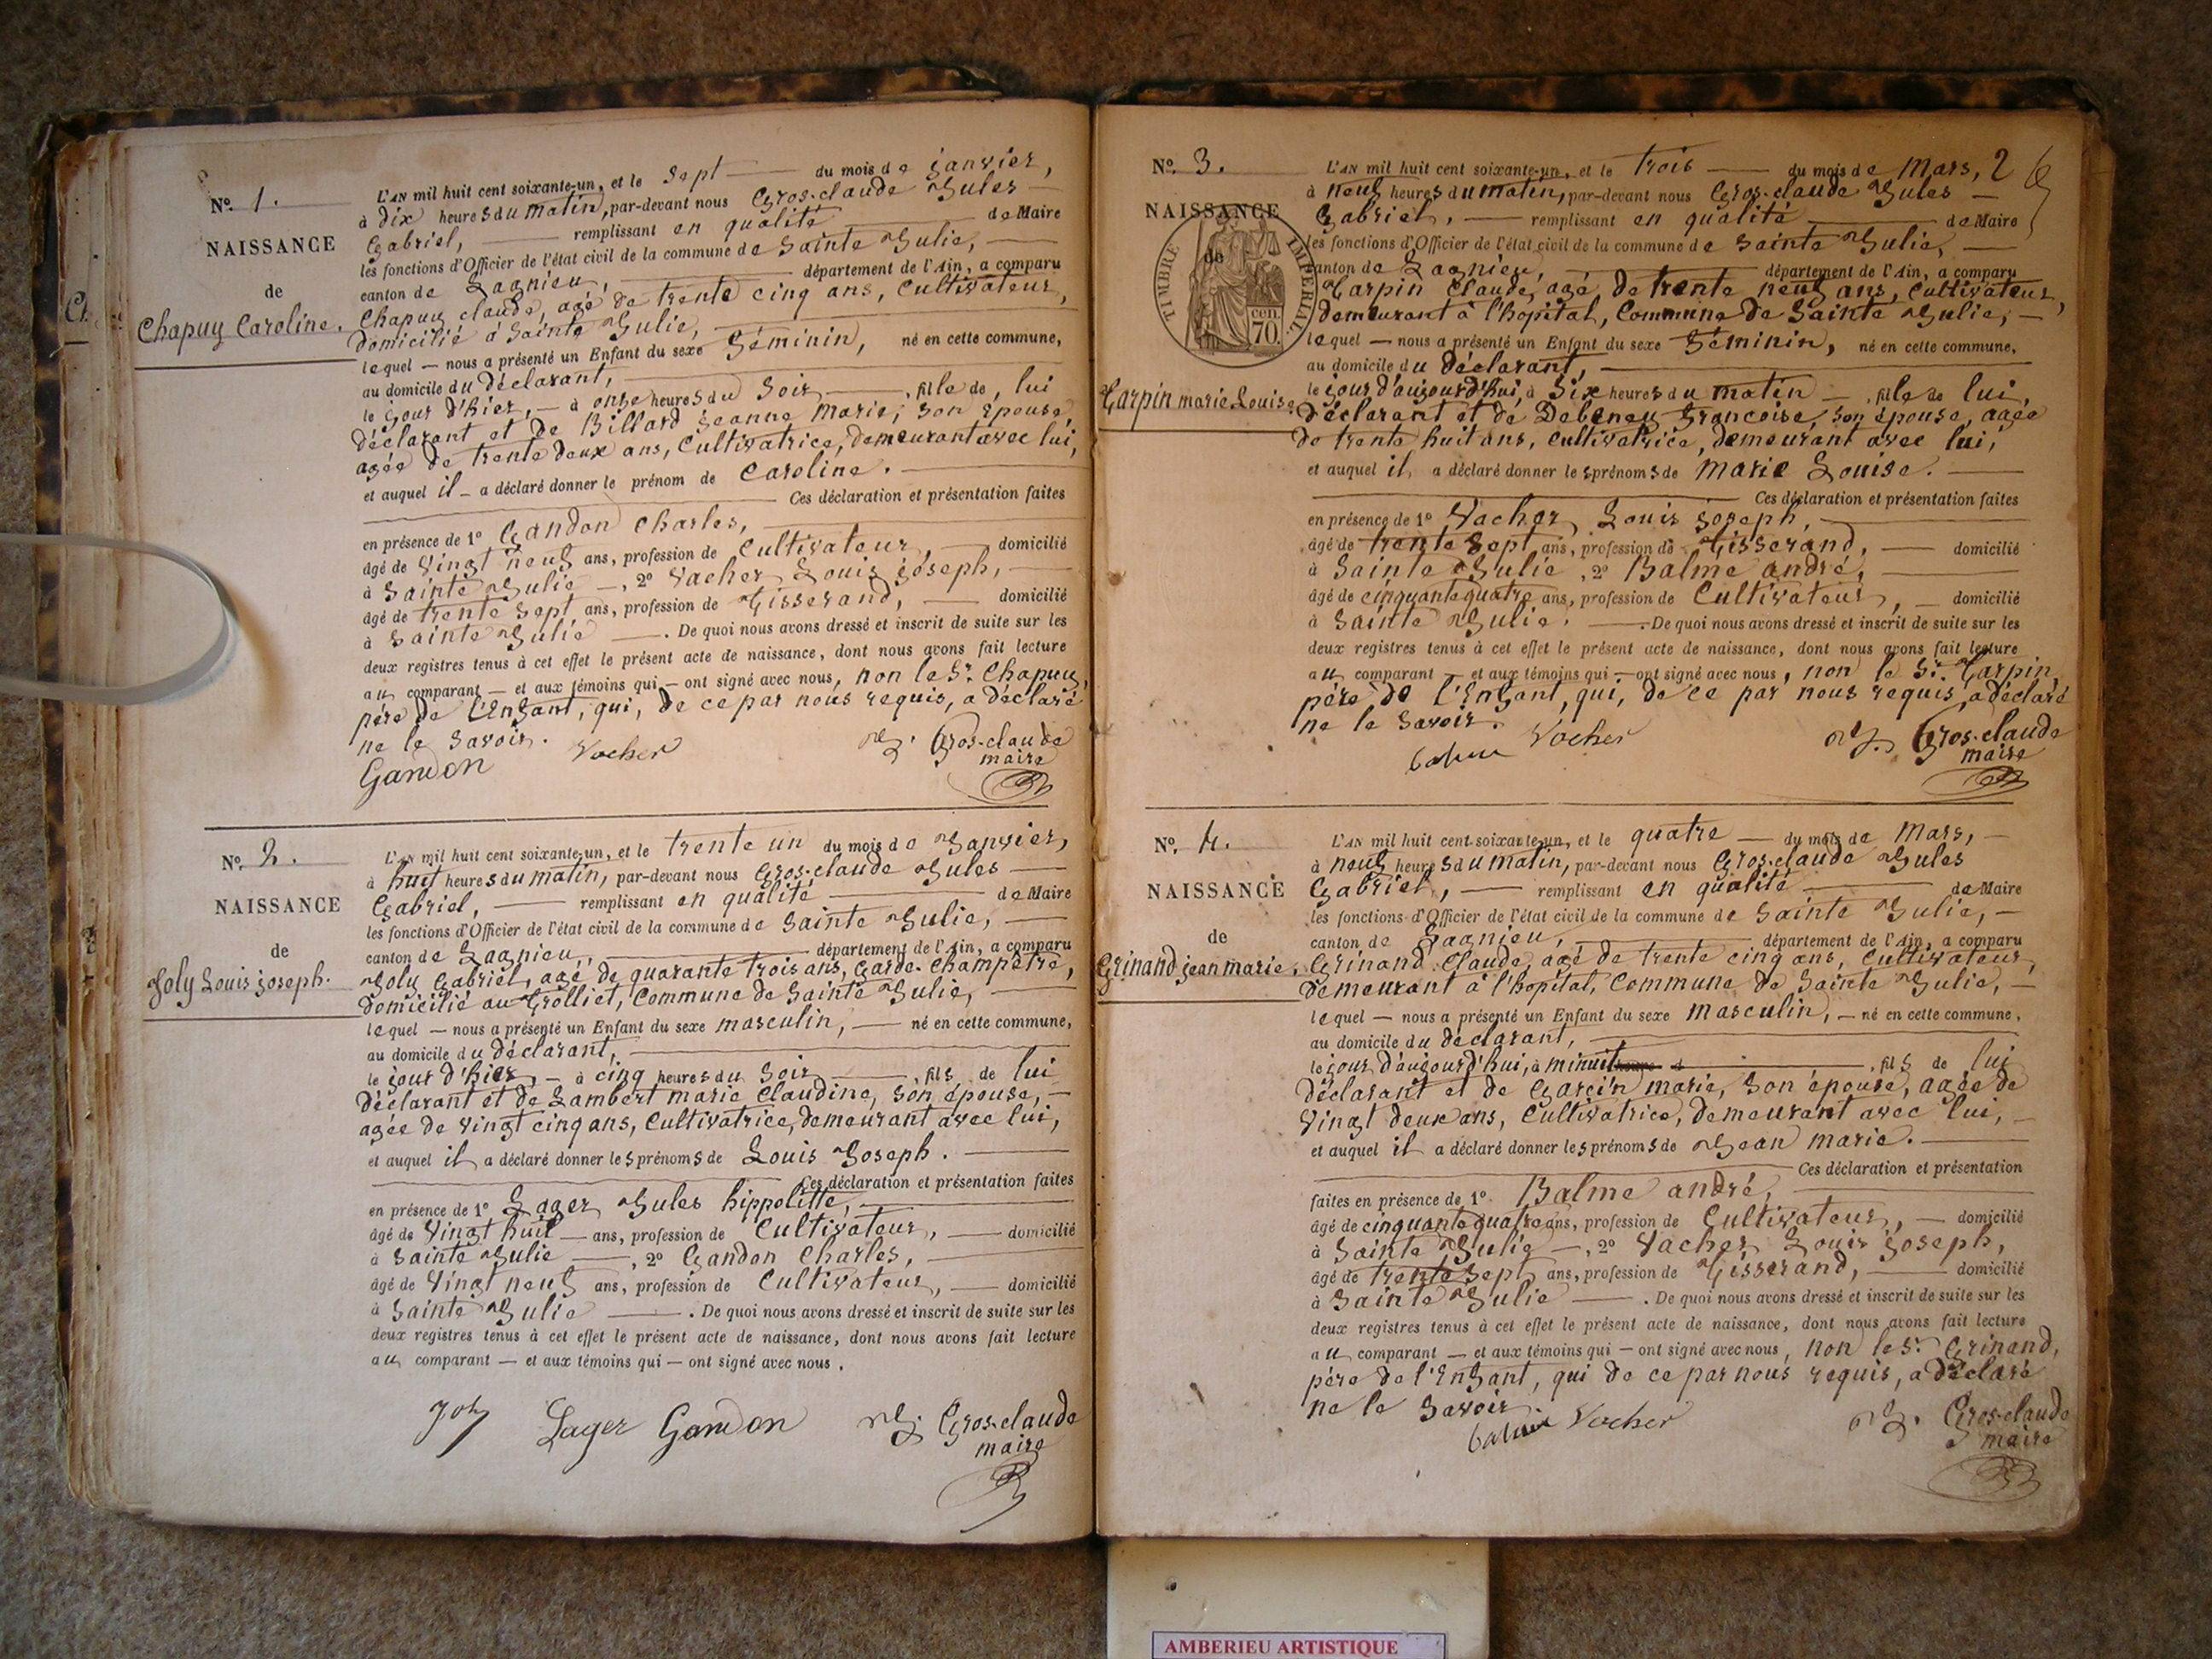 No. 1.
NAISSANCE
de
Chapuy Caroline.
L'AN mil huit cent soixante-un, et le Sept du mois de janvier,
à dix heures du matin, par-devant nous Gros-claude Jules
Gabriel, remplissant en qualité de Maire
les fonctions d'Officier de l'état civil de la commune de Sainte Julie,
canton de Lagnieu, département de l'Ain, a comparu
Chapuy claude, agé de trente cinq ans, Cultivateur,
domicilié à Sainte Julie,
lequel — nous a présenté un Enfant du sexe féminin, né en cette commune,
au domicile du déclarant,
le jour d'hier, — à onze heures du Soir, fille de, lui
déclarant et de Billard jeanne marie, son Epouse,
agée de trente deux ans, Cultivatrice, demeurant avec lui,
et auquel il — a déclaré donner le prénom de Caroline.
Ces déclaration et présentation faites
en présence de 1° Gandon Charles,
âgé de Vingt neuf ans, profession de Cultivateur, domicilié
à Sainte Julie —, 2° Vacher Louis joseph,
âgé de trente Sept ans, profession de Tisserand, domicilié
à Sainte Julie. De quoi nous avons dressé et inscrit de suite sur les
deux registres tenus à cet effet le présent acte de naissance, dont nous avons fait lecture
au comparant — et aux témoins qui — ont signé avec nous, non le Sr. Chapuy,
père de l'Enfant, qui, de ce par nous requis, a déclaré
ne le Savoir.
Gandon Vacher Gros-claude
maire
No. 2.
NAISSANCE
de
Joly Louis joseph.
L'AN mil huit cent soixante-un, et le trente un du mois de Janvier,
à huit heures du matin, par-devant nous Gros-claude Jules
Gabriel, remplissant en qualité de Maire
les fonctions d'Officier de l'état civil de la commune de Sainte Julie,
canton de Lagnieu, département de l'Ain, a comparu
Joly Gabriel, agé de quarante trois ans, Garde-Champêtre,
domicilié au Trolliet, Commune de Sainte Julie,
lequel — nous a présenté un Enfant du sexe masculin, — né en cette commune,
au domicile du déclarant,
le jour d'hier, — à cinq heures du Soir, fils de lui
déclarant et de Lambert marie Claudine, son épouse, —
agée de vingt cinq ans, Cultivatrice, demeurant avec lui,
et auquel il a déclaré donner les prénoms de Louis Joseph.
Ces déclaration et présentation faites
en présence de 1° Lager Jules hippolitte,
âgé de Vingt huit — ans, profession de Cultivateur, domicilié
à Sainte Julie, 2° Gandon Charles,
âgé de Vingt neuf ans, profession de Cultivateur, domicilié
à Sainte Julie. De quoi nous avons dressé et inscrit de suite sur les
deux registres tenus à cet effet le présent acte de naissance, dont nous avons fait lecture
au comparant — et aux témoins qui — ont signé avec nous.
Joly Lager Gandon Gros-claude
maire
No. 3.
NAISSANCE
de
TIMBRE IMPERIAL
cen.
70.
Tarpin marie Louise
L'AN mil huit cent soixante-un, et le trois du mois de Mars, 2
à neuf heures du matin, par-devant nous Gros-claude Jules —
Gabriel, — remplissant en qualité de Maire
les fonctions d'Officier de l'état civil de la commune de Sainte Julie,
canton de Lagnieu, département de l'Ain, a comparu
Tarpin Claude, agé de trente neuf ans, Cultivateur,
demeurant à l'hopital, Commune de Sainte Julie, —
lequel — nous a présenté un Enfant du sexe féminin, né en cette commune,
au domicile du déclarant,
le jour d'aujourd'hui, à Six heures du matin —, fille de lui,
déclarant et de Debeney françoise, Son épouse, agée
de trente huit ans, Cultivatrice, demeurant avec lui,
et auquel il a déclaré donner les prénoms de marie Louise.
Ces déclaration et présentation faites
en présence de 1° Vacher Louis joseph,
âgé de trente Sept ans, profession de Tisserand, domicilié
à Sainte Julie, 2° Balme andré,
âgé de cinquante quatre ans, profession de Cultivateur, — domicilié
à Sainte Julie. De quoi nous avons dressé et inscrit de suite sur les
deux registres tenus à cet effet le présent acte de naissance, dont nous avons fait lecture
au comparant — et aux témoins qui — ont signé avec nous, non le Sr. Tarpin,
père de l'Enfant, qui, de ce par nous requis, a déclaré
ne le Savoir.
balme Vacher Gros-claude
maire
No. 4.
NAISSANCE
de
Grinand jean marie.
L'AN mil huit cent soixante-un, et le quatre — du mois de Mars, —
à neuf heures du matin, par-devant nous Gros-claude Jules
Gabriel, — remplissant en qualité de Maire
les fonctions d'Officier de l'état civil de la commune de Sainte Julie, —
canton de Lagnieu, département de l'Ain, a comparu
Grinand Claude, agé de trente cinq ans, Cultivateur,
demeurant à l'hopital, Commune de Sainte Julie, —
lequel — nous a présenté un Enfant du sexe masculin, — né en cette commune,
au domicile du déclarant,
le jour d'aujourd'hui, à minuit, fils de lui
déclarant et de Garcin marie, Son épouse, agée de
Vingt deux ans, Cultivatrice, demeurant avec lui, —
et auquel il a déclaré donner les prénoms de Jean marie.
Ces déclaration et présentation
faites en présence de 1° Balme andré,
âgé de cinquante quatre ans, profession de Cultivateur, — domicilié
à Sainte Julie —, 2° Vacher Louis joseph,
âgé de trente Sept ans, profession de Tisserand, domicilié
à Sainte Julie. De quoi nous avons dressé et inscrit de suite sur les
deux registres tenus à cet effet le présent acte de naissance, dont nous avons fait lecture
au comparant — et aux témoins qui — ont signé avec nous, non le Sr. Grinand,
père de l'Enfant, qui de ce par nous requis, a déclaré
ne le Savoir.
balme Vacher Gros-claude
maire
AMBERIEU ARTISTIQUE